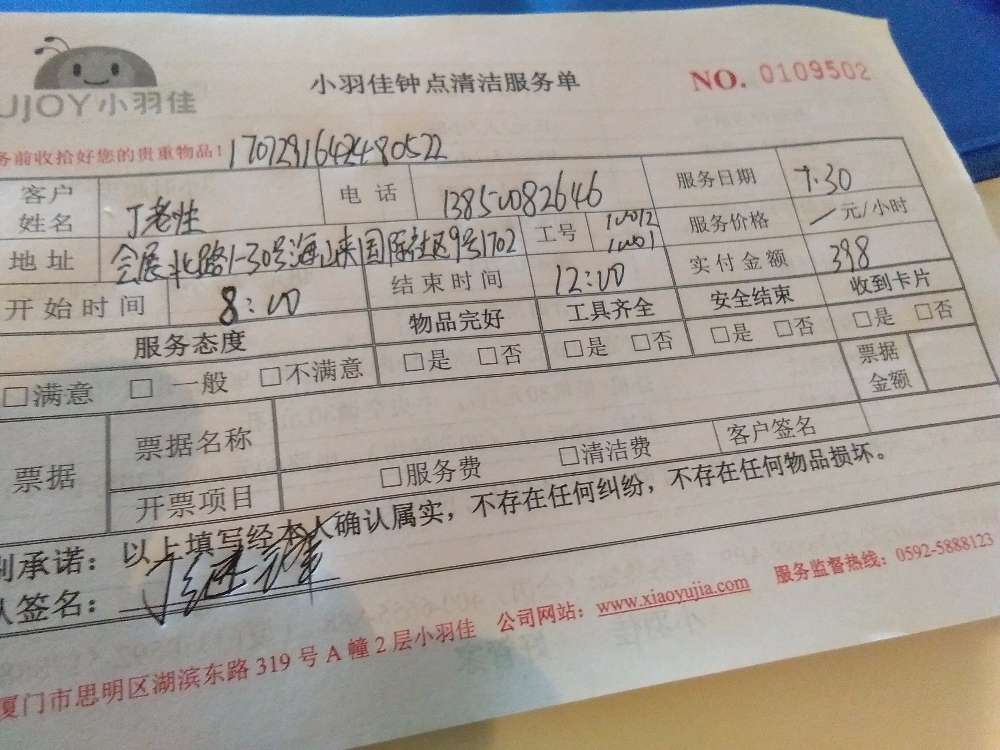 UJOY小羽佳
小羽佳钟点清洁服务单
NO. 0109502
务前收拾好您的贵重物品! 1707291642480522
客户姓名 丁老性 电话 13850082646 服务日期 7.30
地址 会展北路1-30号海峡国际社区9号1702 工号 服务价格 一元/小时
开始时间 8:00 结束时间 12:00 实付金额 398
服务态度 物品完好 工具齐全 安全结束 收到卡片
□满意 □一般 □不满意 □是 □否 □是 □否 □是 □否 □是 □否
票据 票据名称 票据金额
开票项目 □服务费 □清洁费 客户签名
别承诺:以上填写经本人确认属实,不存在任何纠纷,不存在任何物品损坏。
人签名:
厦门市思明区湖滨东路319号A幢2层小羽佳 公司网站:www.xiaoyujia.com 服务监督热线:0592-5888123